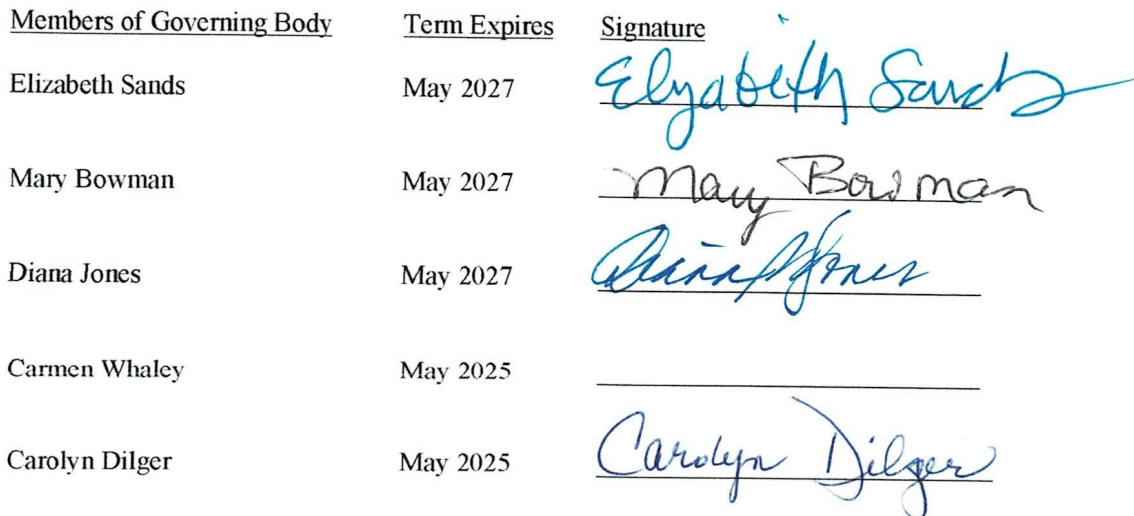 Members of Governing Body Term Expires Signature
Elizabeth Sands May 2027 Elizabeth Sands
Mary Bowman May 2027 Mary Bowman
Diana Jones May 2027 Diana Jones
Carmen Whaley May 2025
Carolyn Dilger May 2025 Carolyn Dilger